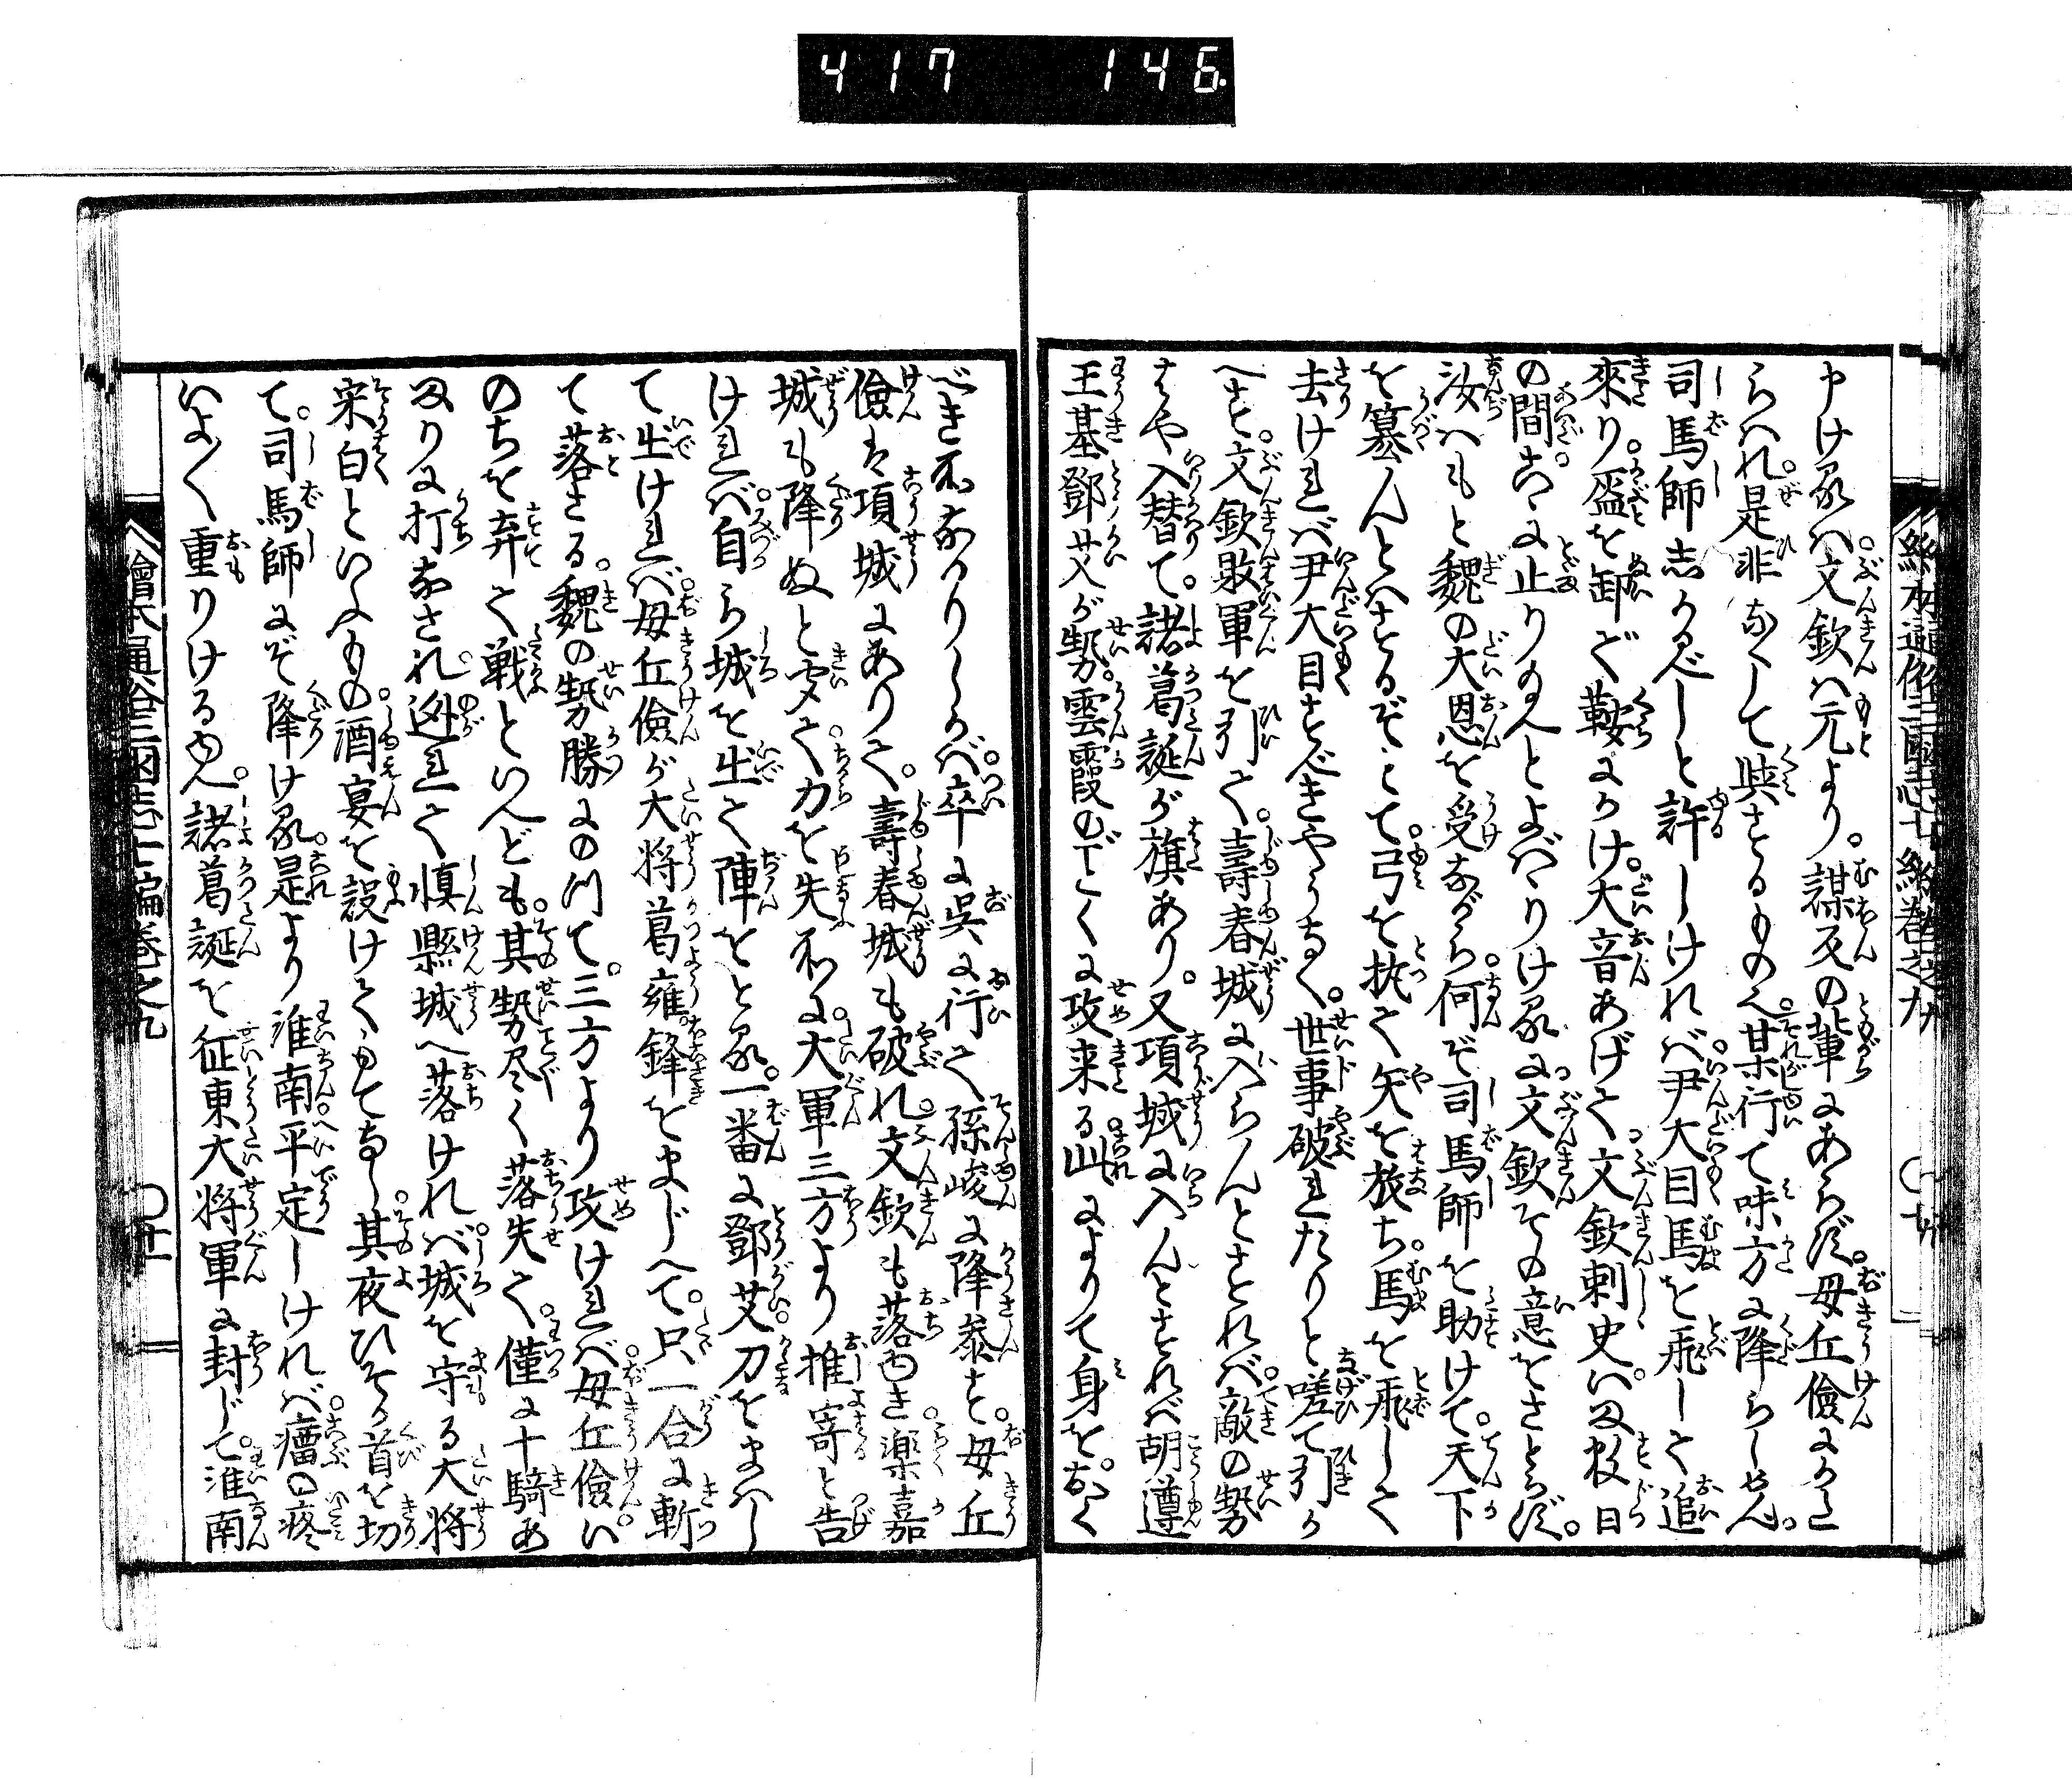 417 146
申ける。は文欽は元より。謀反の輩にあらず。毋丘儉にかこ
らはれ。是非なくして與するもの也。某行て味方に降らしめん。
司馬師志かるべしと許しければ。尹大目馬を飛して追
來り。盔を卸ぎ鞍にかけ。大音あげて文欽刺史。いま数日
の間。こらへ止り給へとよばゝりける。に文欽その意をさとらず。
汝はもと魏の大恩を受ながら。何ぞ司馬師を助けて。天下
を簒んとはするぞとて。弓を執て矢を放ち。馬を飛して
去ければ尹大目すべきやうなく。世事破れたりと嗟て引か
へす。文欽敗軍を引て。壽春城に入らんとすれば。敵の勢
はや入替て。諸葛誕が旗あり。又項城に入んとすれば。胡遵
王基鄧艾が勢。雲霞のごとくに攻来る。此によりて身を。おく
べき所なかりしかば。卒に呉に行て孫峻に降参す。毋丘
儉は項城にありて。壽春城も破れ。文欽も落ゆき。楽嘉
城も降ぬと聞て。力を失ふ所に。大軍三方より推寄と告
ければ。自ら城を出て陣をとる。一番に鄧艾。刀をまはし
て出ければ。毋丘儉が大将葛雍。鋒をまじへて。只一合に斬
て落さる。魏の勢勝にのつて。三方より攻ければ。毋丘儉い
のちを弃て戦といへども。其勢尽く落失て。僅に十騎あ
まりに打なされ。迯れて慎縣城へ落ければ。城を守る大将
宋白といふもの。酒宴を設けてもてなし。其夜ひそかに首を切
て。司馬師にぞ降ける。是より淮南平定しければ。瘤の疼
いよ〳〵重りけるゆへ。諸葛誕を征東大将軍に封じて。淮南
繪本通俗三國志七編巻之九